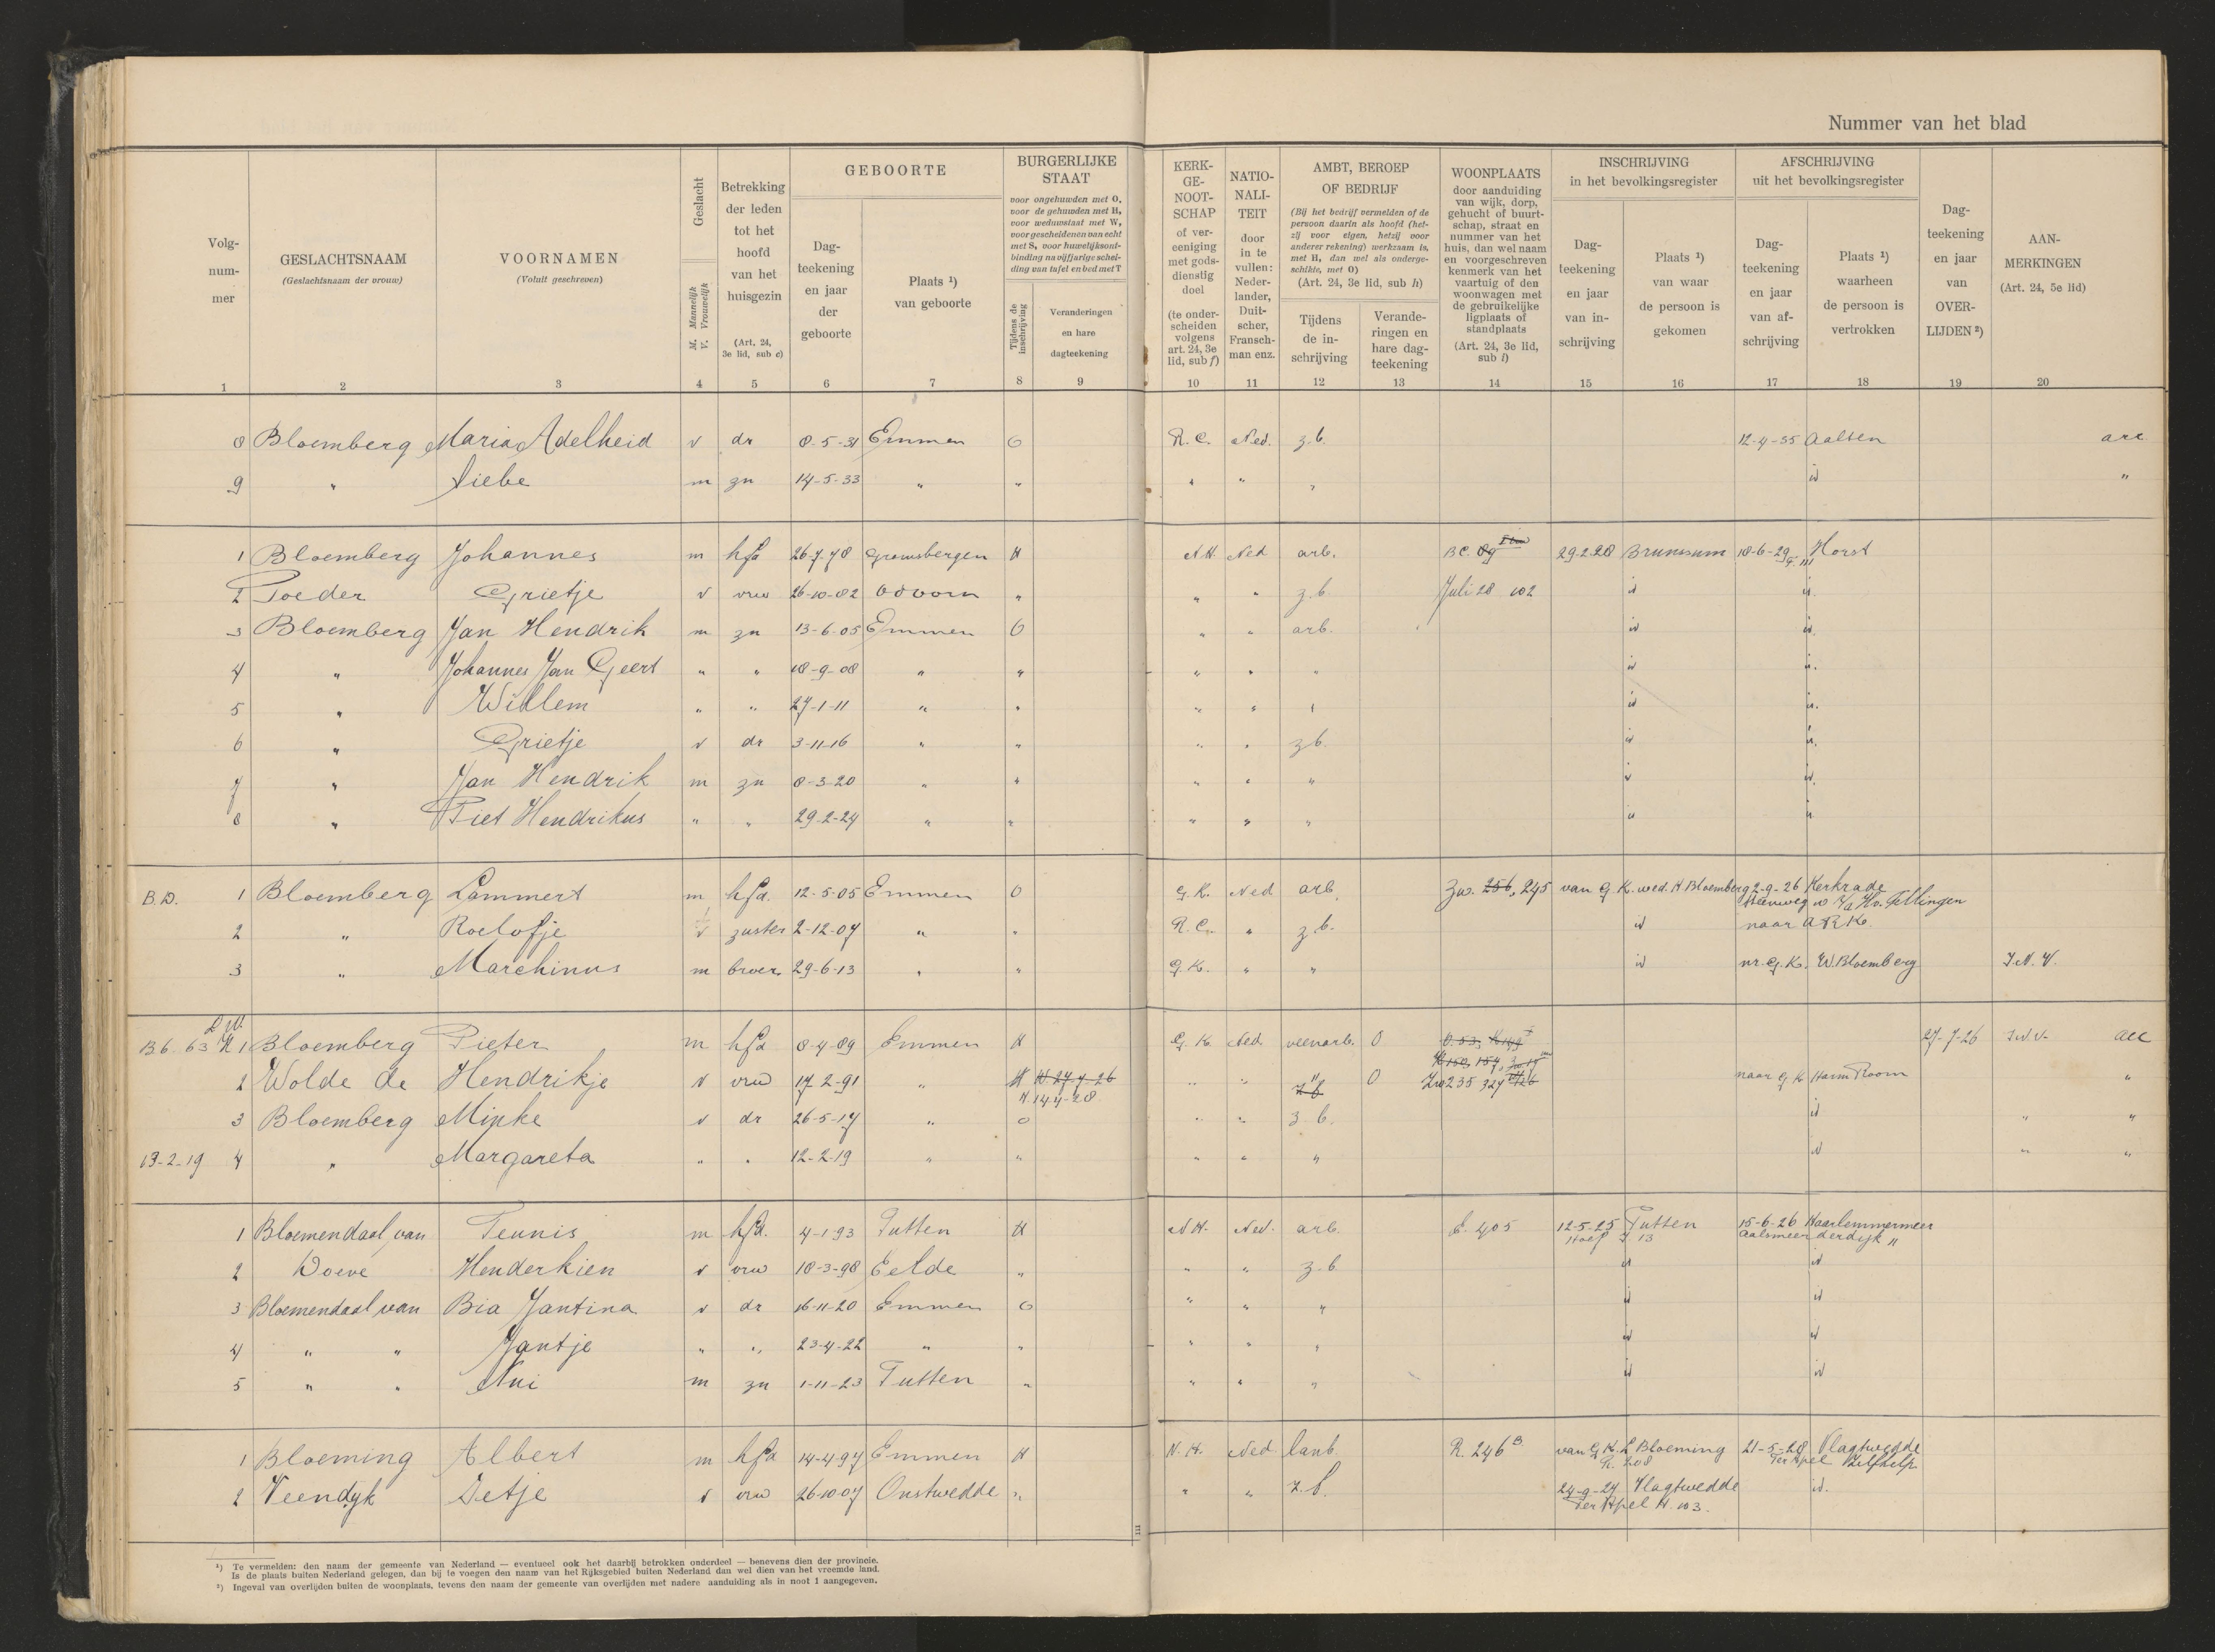 Nummer van het blad
Volg-
num-
mer
GESLACHTSNAAM
(Geslachtsnaam der vrouw)
VOORNAMEN
(Voluit geschreven)
Geslacht
M. Mannelijk
V. Vrouwelijk
Betrekking
der leden
tot het
hoofd
van het
huisgezin
(Art. 24,
3e lid, sub c)
GEBOORTE
Dag-
teekening
en jaar
der
geboorte
Plaats ¹)
van geboorte
BURGERLIJKE
STAAT
voor ongehuwden met O,
voor de gehuwden met H,
voor weduwstaat met W,
voor gescheidenen van echt
met S, voor huwelijksont-
binding na vijfjarige schei-
ding van tafel en bed met T
Tijdens de
inschrijving
Veranderingen
en hare
dagteekening
KERK-
GE-
NOOT-
SCHAP
of ver-
eeniging
met gods-
dienstig
doel
(te onder-
scheiden
volgens
art. 24, 3e
lid, sub f)
NATIO-
NALI-
TEIT
door
in te
vullen:
Neder-
lander,
Duit-
scher,
Fransch-
man enz.
AMBT, BEROEP
OF BEDRIJF
(Bij het bedrijf vermelden of de
persoon daarin als hoofd (het-
zij voor eigen, hetzij voor
anderer rekening) werkzaam is,
met H, dan wel als onderge-
schikte, met O)
(Art. 24, 3e lid, sub h)
Tijdens
de in-
schrijving
Verande-
ringen en
hare dag-
teekening
WOONPLAATS
door aanduiding
van wijk, dorp,
gehucht of buurt-
schap, straat en
nummer van het
huis, dan wel naam
en voorgeschreven
kenmerk van het
vaartuig of den
woonwagen met
de gebruikelijke
ligplaats of
standplaats
(Art. 24, 3e lid,
sub i)
INSCHRIJVING
in het bevolkingsregister
Dag-
teekening
en jaar
van in-
schrijving
Plaats ¹)
van waar
de persoon is
gekomen
AFSCHRIJVING
uit het bevolkingsregister
Dag-
teekening
en jaar
van af-
schrijving
Plaats ¹)
waarheen
de persoon is
vertrokken
Dag-
teekening
en jaar
van
OVER-
LIJDEN ²)
AAN-
MERKINGEN
(Art. 24, 5e lid)
1 2 3 4 5 6 7 8 9 10 11 12 13 14 15 16 17 18 19 20
8 Bloemberg Maria Adelheid v dr 8-5-31 Emmen O R.C. Ned. z.b. 12-4-35 Aalten
9 " Siebe m zn 14-5-33 " " " " " id "
1 Bloemberg Johannes m hfd 26-7-78 Gramsbergen H N.H. Ned arb. BC. 89 29-2-28 Brunssum 18-6-29 Horst
2 Poeder Grietje v vrw 26-10-82 Odoorn " " " z.b. Juli 28 102 id id
3 Bloemberg Jan Hendrik m zn 13-6-05 Emmen O " " arb. id id
4 " Johannes Jan Geert " " 18-9-08 " " " " " id id
5 " Willem " " 27-1-11 " " " " " id id
6 " Grietje v dr 3-11-16 " " " " z.b. id id
7 " Jan Hendrik m zn 8-3-20 " " " " " id id
8 " Piet Hendrikus " " 29-2-24 " " " " " id id
B.D. 1 Bloemberg Lammert m hfd. 12-5-05 Emmen O G.K. Ned arb. Zw. 256, 245 van G.K. wed. H Bloemberg 2-9-26 Kerkrade
2 " Roelofje v zuster 2-12-07 " " R.C. " z.b. id naar A.R.K.
3 " Marchinus m broer 29-6-13 " " G.K. " " id nr. G.K. W. Bloemberg J.N.V.
B.6. 63 1 Bloemberg Pieter m hfd 8-4-89 Emmen H G.K. Ned. veenarb. O 27-7-26
2 Wolde de Hendrikje v vrw 17-2-91 " H W 27-7-26 " " z.b. " O Zw 235 327 naar G.K. Harm Room "
H 14-4-28
3 Bloemberg Minke v dr 26-5-17 " O " " z.b. id " "
13-2-19 4 " Margareta " " 12-2-19 " " " " " id " "
1 Bloemendaal van Teunis m hfd. 4-1-93 Putten H N.H. Ned. arb. E. 405 12-5-25 Putten 15-6-26 Haarlemmermeer
Hoef 13 Aalsmeerderdijk 11
2 Doeve Henderkien v vrw 18-3-98 Eelde " " " z.b. id id
3 Bloemendaal van Bia Jantina v dr 16-11-20 Emmen O " " " id id
4 " " Jantje " " 23-4-22 " " " " " id id
5 " " Nui m zn 1-11-23 Putten " " " " id id
1 Bloeming Albert m hfd 14-4-97 Emmen H N.H. Ned lanb. R. 246 B van G.K. L Bloeming 21-5-28 Vlagtwedde
R. 208 Ter Apel
2 Veendijk Detje v vrw 26-10-07 Onstwedde " " " z.b. 24-9-27 Vlagtwedde id.
Ter Apel H. 103.
¹) Te vermelden: den naam der gemeente van Nederland — eventueel ook het daarbij betrokken onderdeel — benevens dien der provincie.
Is de plaats buiten Nederland gelegen, dan bij te voegen den naam van het Rijksgebied buiten Nederland dan wel dien van het vreemde land.
²) Ingeval van overlijden buiten de woonplaats, tevens den naam der gemeente van overlijden met nadere aanduiding als in noot 1 aangegeven.